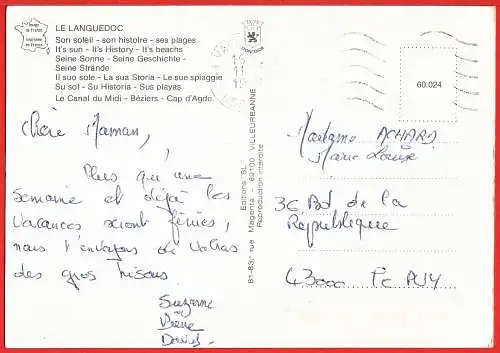 LE LANGUEDOC
Son soleil - son histoire - ses plages
It's sun - It's History - It's beachs
Seine Sonne - Seine Geschichte -
Seine Strände
Il suo sole - La sua Storia - Le sue spiaggie
Su sol - Su Historia - Sus playas
Le Canal du Midi - Béziers - Cap d'Agde.
Chère Maman,
Plus qu'une
semaine et déjà les
vacances seront finies,
nous t'envoyons de
des gros bisous
Suzanne
Pierre
David
Editions "SL"
81-83, rue Magenta - 69100 VILLEURBANNE
Reproduction interdite
60.024
Madame ACHARD
Marie Louise
36 Bd de la
République
43000 Le PUY